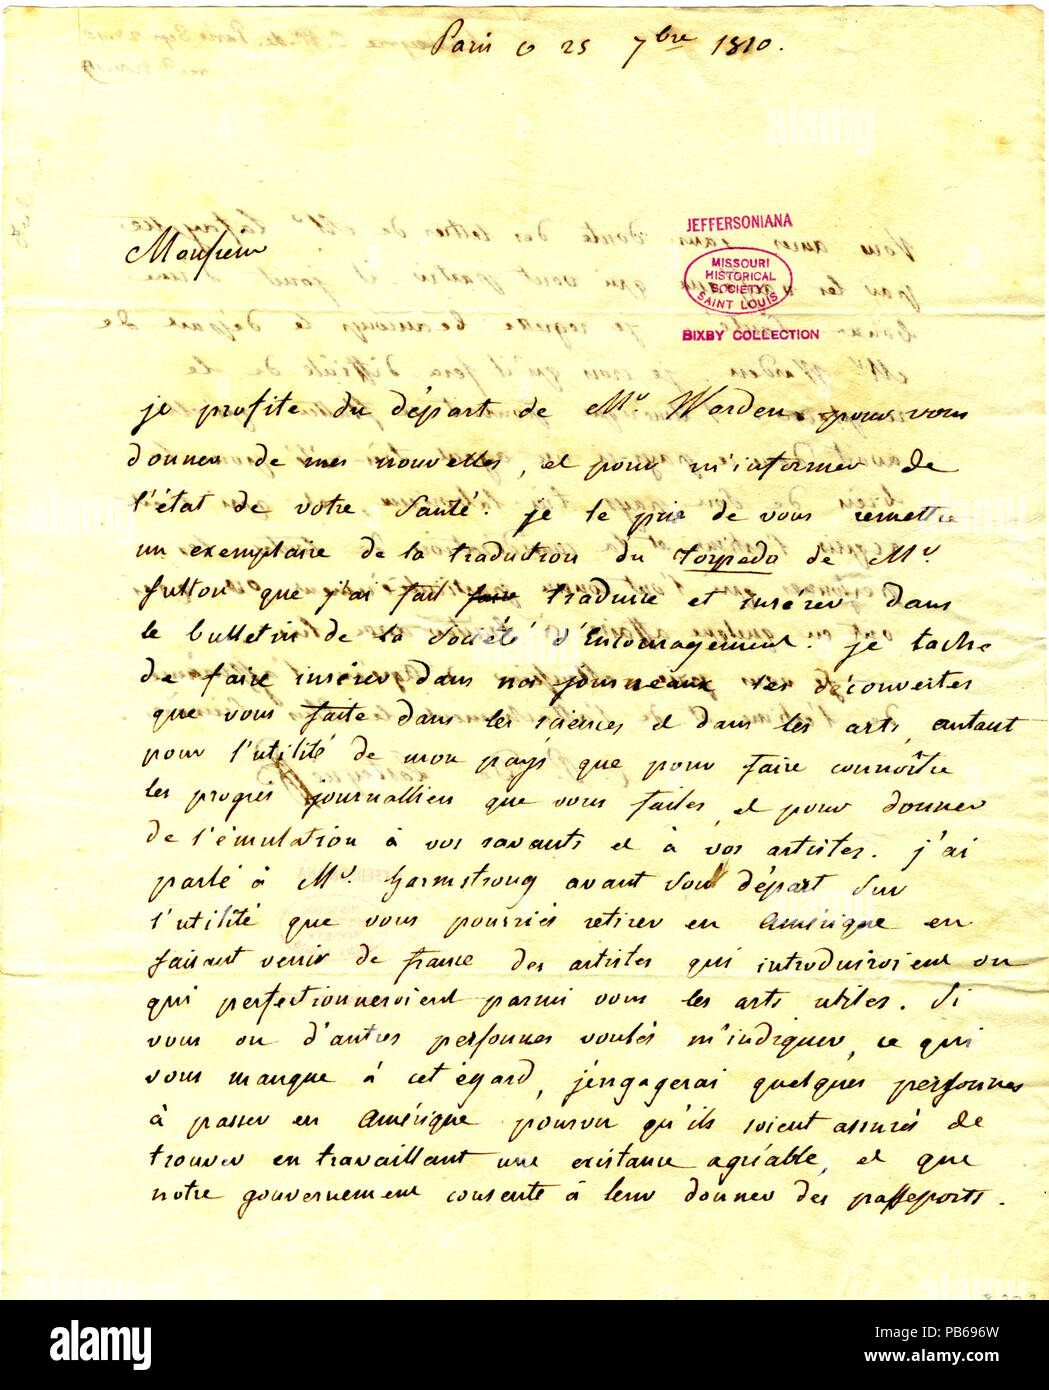 Paris ce 25 7bre 1810.
JEFFERSONIANA
MISSOURI
HISTORICAL
SOCIETY
SAINT LOUIS
BIXBY COLLECTION
Monsieur
je profite du départ de Mr. Warden pour vous
donner de mes nouvelles, et pour m'informer de
l'état de votre Santé. je le prie de vous remettre
un exemplaire de la traduction du torpedo de Mr.
fulton que j'ai fait faire traduire et insérer dans
le bulletin de la Société d'Encouragement. je tache
de faire insérer dans nos journeaux les découvertes
que vous faite dans les sciences et dans les arts, autant
pour l'utilité de mon pays que pour faire connoître
les progrés journallien que vous faites, et pour donner
de l'émulation à vos savants et à vos artistes. j'ai
parlé à Mr. garmstrong avant son départ sur
l'utilité que vous pourriés retirer en amérique en
faisant venir de france des artistes qui introduiroient ou
qui perfectionneroient parmi vous les arts utiles. Si
vous ou d'autres personnes voulés m'indiquer, ce qui
vous manque à cet égard, j'engagerai quelques personnes
à passer en amérique pourvu qu'ils soient assurés de
trouver en travaillant une existance agréable, et que
notre gouvernement consente à leur donner des passeports.
alamy
Image ID: PB696W
www.alamy.com